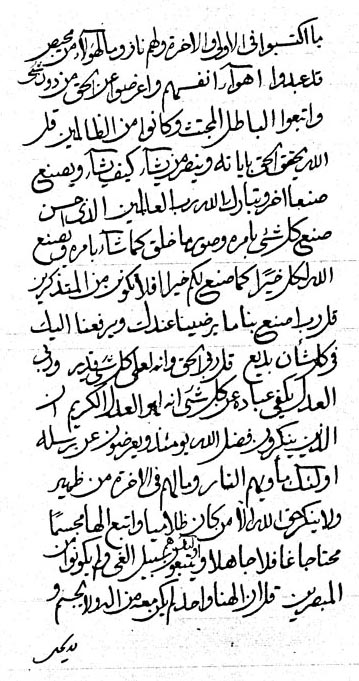 بما اكتسبوا فى الاولى والاخرة ولهم نار وما لهؤلاء من محيص
قد عبدوا اهواء انفسهم واعرضوا عن الحق من دون
واتبعوا الباطل وكانوا من الظالمين قل
الله يحقق الحق باياته وينصر من يشاء كيف يشاء ويصنع
صنعا اخر وتبارك الله رب العالمين الذى احسن
صنع كل شىء بامره وصور ما خلق كما شاء بامره ويصنع
الله لكل خيرا كما صنع لكم خيرا افلا تكونن من المتذكرين
قل رب اصنع بنا ما يرضينا عندك ويرفعنا اليك
فى كل شأن بديع قل فى الحق وانه لعلى كل شىء قدير وفى
العدل يكفى عباده عن كل شىء انه لهو العدل الكريم ان
الذين ينكرون فضل الله يومئذ ويعرضون عن رسله
اولئك مأويهم النار وما لهم فى الاخرة من ظهير
ولا ينكر حق الله الا من كان ظلاميا واتبع الها مجسما
محتاجا فلا جاهلا ويتبعون سبيل الغى ولم يكونوا من
المبصرين قل ان الهنا واحد لم يكن معه من اله ولا بجسم و